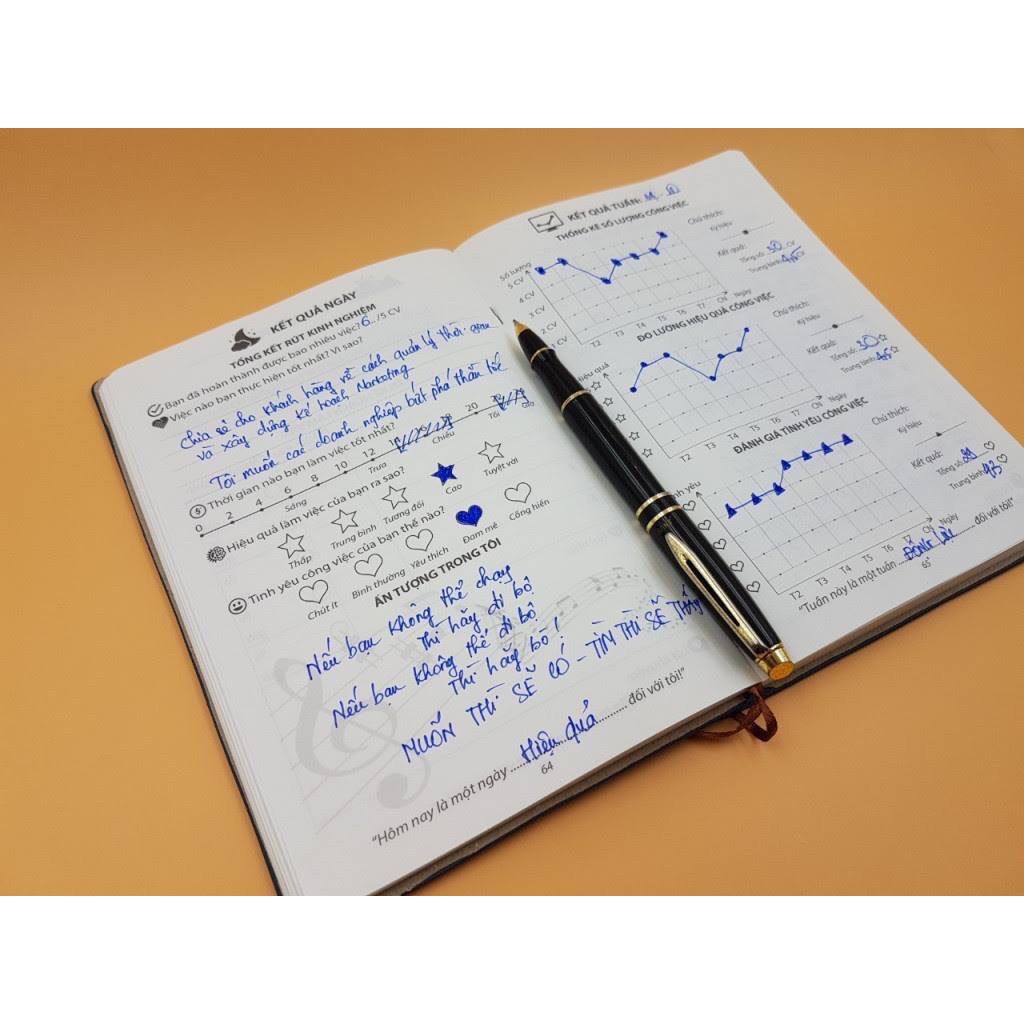 KẾT QUẢ NGÀY
TỔNG KẾT RÚT KINH NGHIỆM
Bạn đã hoàn thành được bao nhiêu việc? 6../5 CV
Việc nào bạn thực hiện tốt nhất? Vì sao?
Chia sẻ cho khách hàng về cách quản lý thời gian
và xây dựng kế hoạch Marketing
Tôi muốn các doanh nghiệp bứt phá thần tốc
Thời gian nào bạn làm việc tốt nhất?
0 2 4 6 8 10 12 20
Sáng Trưa Chiều Tối
Hiệu quả làm việc của bạn ra sao?
Thấp Trung bình Tương đối Cao Tuyệt vời
Tình yêu công việc của bạn thế nào?
Chút ít Bình thường Yêu thích Đam mê Cống hiến
ẤN TƯỢNG TRONG TÔI
Nếu bạn không thể chạy
Thì hãy đi bộ
Nếu bạn không thể đi bộ
Thì hãy bò!
MUỐN THÌ SẼ CÓ - TIN THÌ SẼ THẤY
"Hôm nay là một ngày ......Hiệu quả.......... đối với tôi!"
64
KẾT QUẢ TUẦN:
THỐNG KÊ SỐ LƯỢNG CÔNG VIỆC
Số lượng
5 CV
4 CV
3 CV
2 CV
T2 T3 T4 T5 T6 T7 CN Ngày
Chú thích:
Ký hiệu
Kết quả:
Tổng số: 30 CV
Trung bình
ĐO LƯỜNG HIỆU QUẢ CÔNG VIỆC
T2 T3 T4 T5 T6 T7 CN Ngày
Chú thích:
Ký hiệu
Kết quả:
Tổng số: 30
Trung bình
ĐÁNH GIÁ TÌNH YÊU CÔNG VIỆC
T2 T3 T4 T5 T6 T7 CN Ngày
Chú thích:
Ký hiệu
Kết quả:
Tổng số
Trung bình
"Tuần này là một tuần ... đối với tôi!"
65